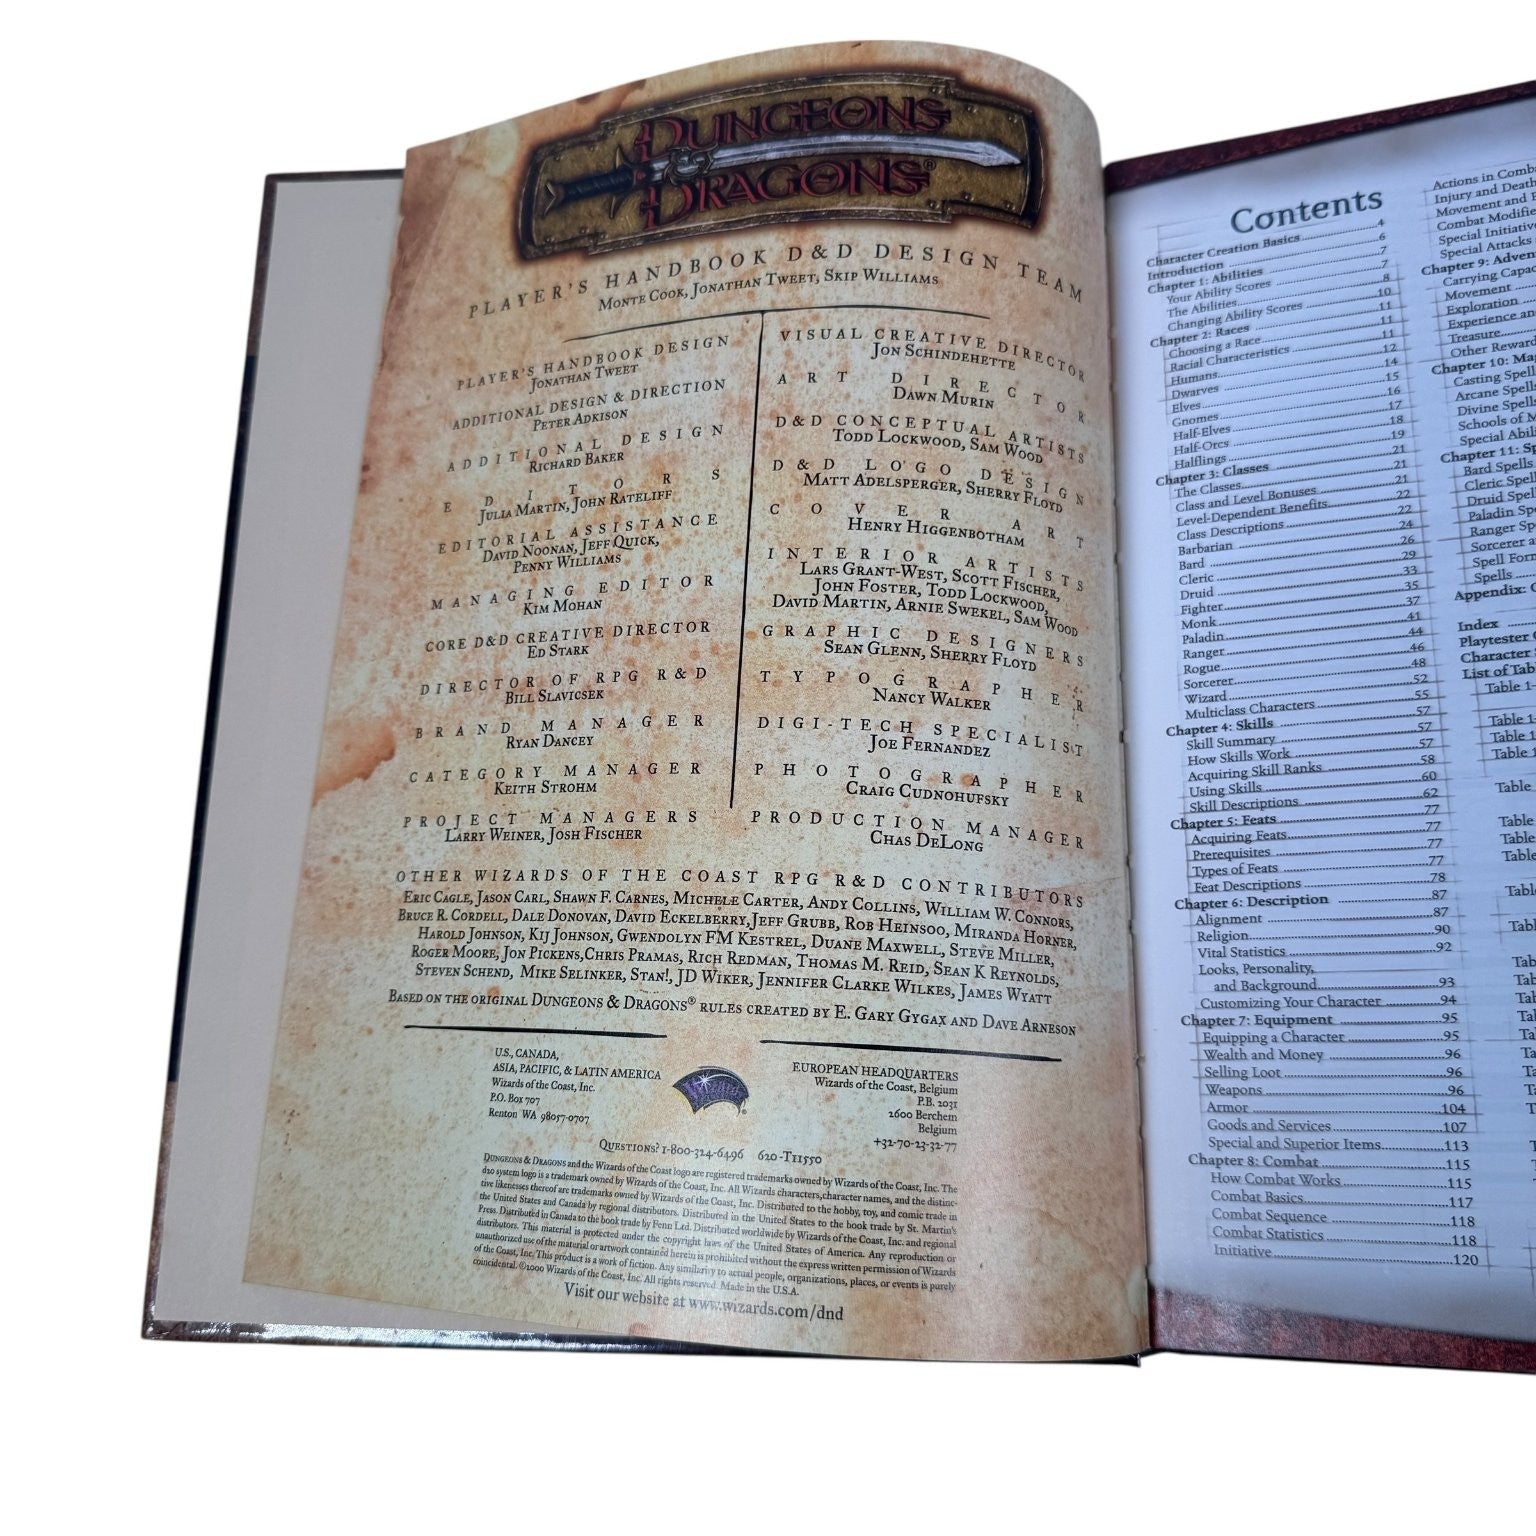 DUNGEONS
& DRAGONS®
PLAYER'S HANDBOOK D&D DESIGN TEAM
MONTE COOK, JONATHAN TWEET, SKIP WILLIAMS
PLAYER'S HANDBOOK DESIGN
JONATHAN TWEET
ADDITIONAL DESIGN & DIRECTION
PETER ADKISON
ADDITIONAL DESIGN
RICHARD BAKER
EDITORS
JULIA MARTIN, JOHN RATELIFF
EDITORIAL ASSISTANCE
DAVID NOONAN, JEFF QUICK,
PENNY WILLIAMS
MANAGING EDITOR
KIM MOHAN
CORE D&D CREATIVE DIRECTOR
ED STARK
DIRECTOR OF RPG R&D
BILL SLAVICSEK
BRAND MANAGER
RYAN DANCEY
CATEGORY MANAGER
KEITH STROHM
PROJECT MANAGERS
LARRY WEINER, JOSH FISCHER
VISUAL CREATIVE DIRECTOR
JON SCHINDEHETTE
ART DIRECTOR
DAWN MURIN
D&D CONCEPTUAL ARTISTS
TODD LOCKWOOD, SAM WOOD
D&D LOGO DESIGN
MATT ADELSPERGER, SHERRY FLOYD
COVER ART
HENRY HIGGENBOTHAM
INTERIOR ARTISTS
LARS GRANT-WEST, SCOTT FISCHER,
JOHN FOSTER, TODD LOCKWOOD,
DAVID MARTIN, ARNIE SWEKEL, SAM WOOD
GRAPHIC DESIGNERS
SEAN GLENN, SHERRY FLOYD
TYPOGRAPHER
NANCY WALKER
DIGI-TECH SPECIALIST
JOE FERNANDEZ
PHOTOGRAPHER
CRAIG CUDNOHUFSKY
PRODUCTION MANAGER
CHAS DELONG
OTHER WIZARDS OF THE COAST RPG R&D CONTRIBUTORS
ERIC CAGLE, JASON CARL, SHAWN F. CARNES, MICHELE CARTER, ANDY COLLINS, WILLIAM W. CONNORS,
BRUCE R. CORDELL, DALE DONOVAN, DAVID ECKELBERRY, JEFF GRUBB, ROB HEINSOO, MIRANDA HORNER,
HAROLD JOHNSON, KIJ JOHNSON, GWENDOLYN FM KESTREL, DUANE MAXWELL, STEVE MILLER,
ROGER MOORE, JON PICKENS, CHRIS PRAMAS, RICH REDMAN, THOMAS M. REID, SEAN K REYNOLDS,
STEVEN SCHEND, MIKE SELINKER, STAN!, JD WIKER, JENNIFER CLARKE WILKES, JAMES WYATT
BASED ON THE ORIGINAL DUNGEONS & DRAGONS® RULES CREATED BY E. GARY GYGAX AND DAVE ARNESON
U.S., CANADA,
ASIA, PACIFIC, & LATIN AMERICA
Wizards of the Coast, Inc.
P.O. Box 707
Renton WA 98057-0707
EUROPEAN HEADQUARTERS
Wizards of the Coast, Belgium
P.B. 2031
2600 Berchem
Belgium
+32-70-23-32-77
QUESTIONS? 1-800-324-6496 620-T11550
DUNGEONS & DRAGONS and the Wizards of the Coast logo are registered trademarks owned by Wizards of the Coast, Inc. The
d20 system logo is a trademark owned by Wizards of the Coast, Inc. All Wizards characters, character names, and the distinc-
tive likenesses thereof are trademarks owned by Wizards of the Coast, Inc. Distributed to the hobby, toy, and comic trade in
the United States and Canada by regional distributors. Distributed in the United States to the book trade by St. Martin's
Press. Distributed in Canada to the book trade by Fenn Ltd. Distributed worldwide by Wizards of the Coast, Inc. and regional
distributors. This material is protected under the copyright laws of the United States of America. Any reproduction or
unauthorized use of the material or artwork contained herein is prohibited without the express written permission of Wizards
of the Coast, Inc. This product is a work of fiction. Any similarity to actual people, organizations, places, or events is purely
coincidental. ©2000 Wizards of the Coast, Inc. All rights reserved. Made in the U.S.A.
Visit our website at www.wizards.com/dnd
Contents
Character Creation Basics 4
Introduction 6
Chapter 1: Abilities 7
Your Ability Scores 7
The Abilities 8
Changing Ability Scores 10
Chapter 2: Races 11
Choosing a Race 11
Racial Characteristics 11
Humans 12
Dwarves 14
Elves 15
Gnomes 16
Half-Elves 17
Half-Orcs 18
Halflings 19
Chapter 3: Classes 21
The Classes 21
Class and Level Bonuses 21
Level-Dependent Benefits 22
Class Descriptions 22
Barbarian 24
Bard 26
Cleric 29
Druid 33
Fighter 35
Monk 37
Paladin 41
Ranger 44
Rogue 46
Sorcerer 48
Wizard 52
Multiclass Characters 55
Chapter 4: Skills 57
Skill Summary 57
How Skills Work 57
Acquiring Skill Ranks 58
Using Skills 60
Skill Descriptions 62
Chapter 5: Feats 77
Acquiring Feats 77
Prerequisites 77
Types of Feats 77
Feat Descriptions 78
Chapter 6: Description 87
Alignment 87
Religion 90
Vital Statistics 92
Looks, Personality,
and Background 93
Customizing Your Character 94
Chapter 7: Equipment 95
Equipping a Character 95
Wealth and Money 96
Selling Loot 96
Weapons 96
Armor 104
Goods and Services 107
Special and Superior Items 113
Chapter 8: Combat 115
How Combat Works 115
Combat Basics 117
Combat Sequence 118
Combat Statistics 118
Initiative 120
Actions in Comba
Injury and Death
Movement and
Combat Modifie
Special Initiative
Special Attacks
Chapter 9: Adven
Carrying Capac
Movement
Exploration
Experience an
Treasure
Other Reward
Chapter 10: Ma
Casting Spells
Arcane Spells
Divine Spells
Schools of M
Special Abili
Chapter 11: Sp
Bard Spells
Cleric Spel
Druid Spel
Paladin Sp
Ranger Sp
Sorcerer a
Spell Form
Spells
Appendix:
Index
Playtester
Character
List of Tab
Table 1-
Table 1-
Table 1-
Table 1-
Table
Table
Table
Table
Tabl
Tab
Tab
Ta
Ta
Ta
Ta
Ta
Ta
T